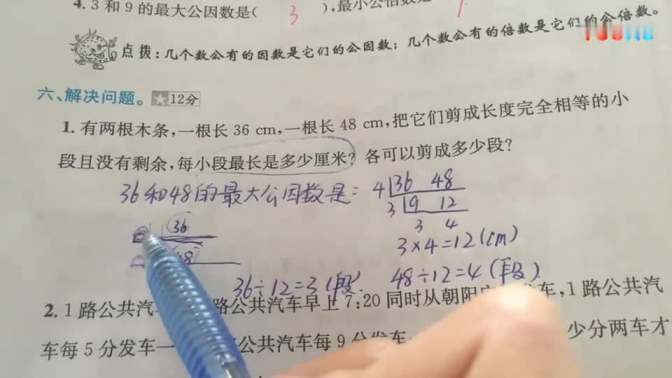 4. 3 和 9 的最大公因数是( 3 ),最小公倍数是
点拨:几个数公有的因数是它们的公因数;几个数公有的倍数是它们的公倍数。
六、解决问题。★12分
1. 有两根木条,一根长 36 cm,一根长 48 cm,把它们剪成长度完全相等的小
段且没有剩余,每小段最长是多少厘米? 各可以剪成多少段?
36和48的最大公因数是: 4 36 48
3 9 12
3 4
36
3×4=12(cm)
48
36÷12=3(段) 48÷12=4(段)
2. 1 路公共汽 路公共汽车早上 7:20 同时从朝阳 车,1 路公共汽
车每 5 分发车一 公共汽车每 9 分发车 少分两车才